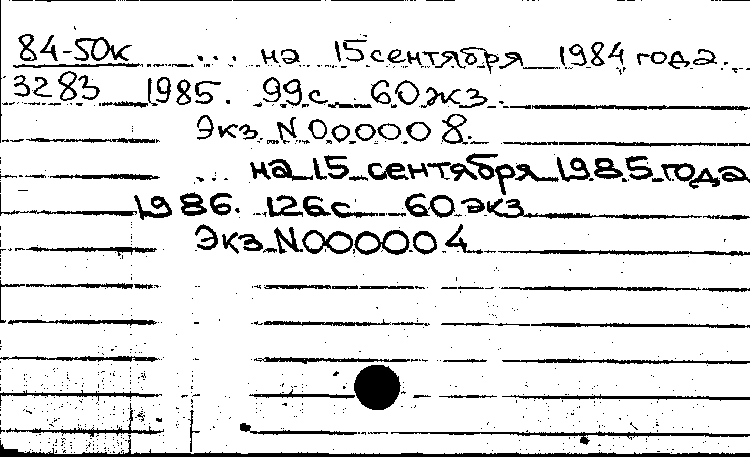 84-50к ... на 15 сентября 1984 года.
3283 1985. 99с 60экз.
Экз. N 000008.
... на 15 сентября 1985 года
1986. 126с 60 экз
Экз. N000004